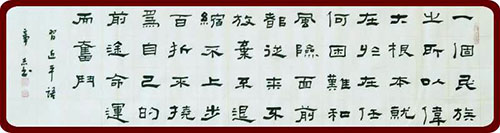 一個民族
之所以偉
大根本就
在於在任
何困難和
風險面前
都從來不
放棄不退
縮不止步
百折不撓
為自己的
前途命運
而奮鬥
習近平語